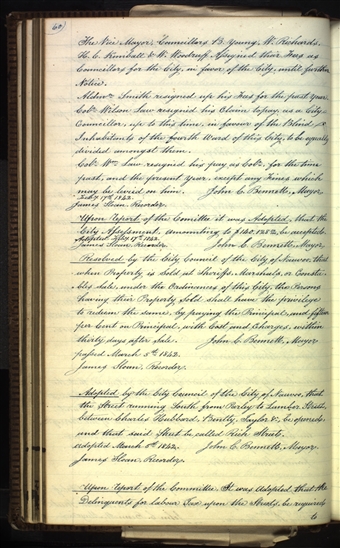 60
The Vice Mayor, Councillors B. Young, W. Richards,
H. C. Kimball & W. Woodruff, Assigned their Fees as
Councillors for the City, in favor of the City, until further
Notice.
Aldern. Smith resigned up his Fees for the past year.
Colr. Wilson Law resigned his Claim to pay, as a City
Councillor, up to this time, in favour of the Blind
Inhabitants of the fourth Ward of this City, to be equally
divided amongst them.
Colr. Wm. Law resigned his pay as Colr. for the time
past, and the present Year, except any Fines which
may be levied on him. John C. Bennett, Mayor
Feby. 17th 1842.
James Sloan Recorder.
Upon Report of the Comittee it was Adopted, that the
City Assessment, amounting to be accepted.
Adopted Feby. 17th 1842. John C. Bennett, Mayor
James Sloan, Recorder.
Resolved by the City Council of the City of Nauvoo, that
when Property is Sold at Sheriffs, Marshals, or Consta-
bles Sale, under the Ordinances of this City, the Persons
having their Property Sold shall have the privilege
to redeem the same, by paying the Principal, and fifteen
per Cent on Principal, with Cost and Charges, within
thirty days after Sale. John C. Bennett, Mayor
passed March 5th 1842.
James Sloan, Recorder.
Adopted by the City Council of the City of Nauvoo, that
the Street running South from Parley to Lumber Street,
between Charles Hubbard, Bently, Taylor &c. be opened,
and that said Street be called Rich Street.
adopted March 5th 1842. John C. Bennett, Mayor
James Sloan, Recorder.
Upon Report of the Committee, It was Adopted that the
Delinquents for Labour Tax upon the Streets, be required
to